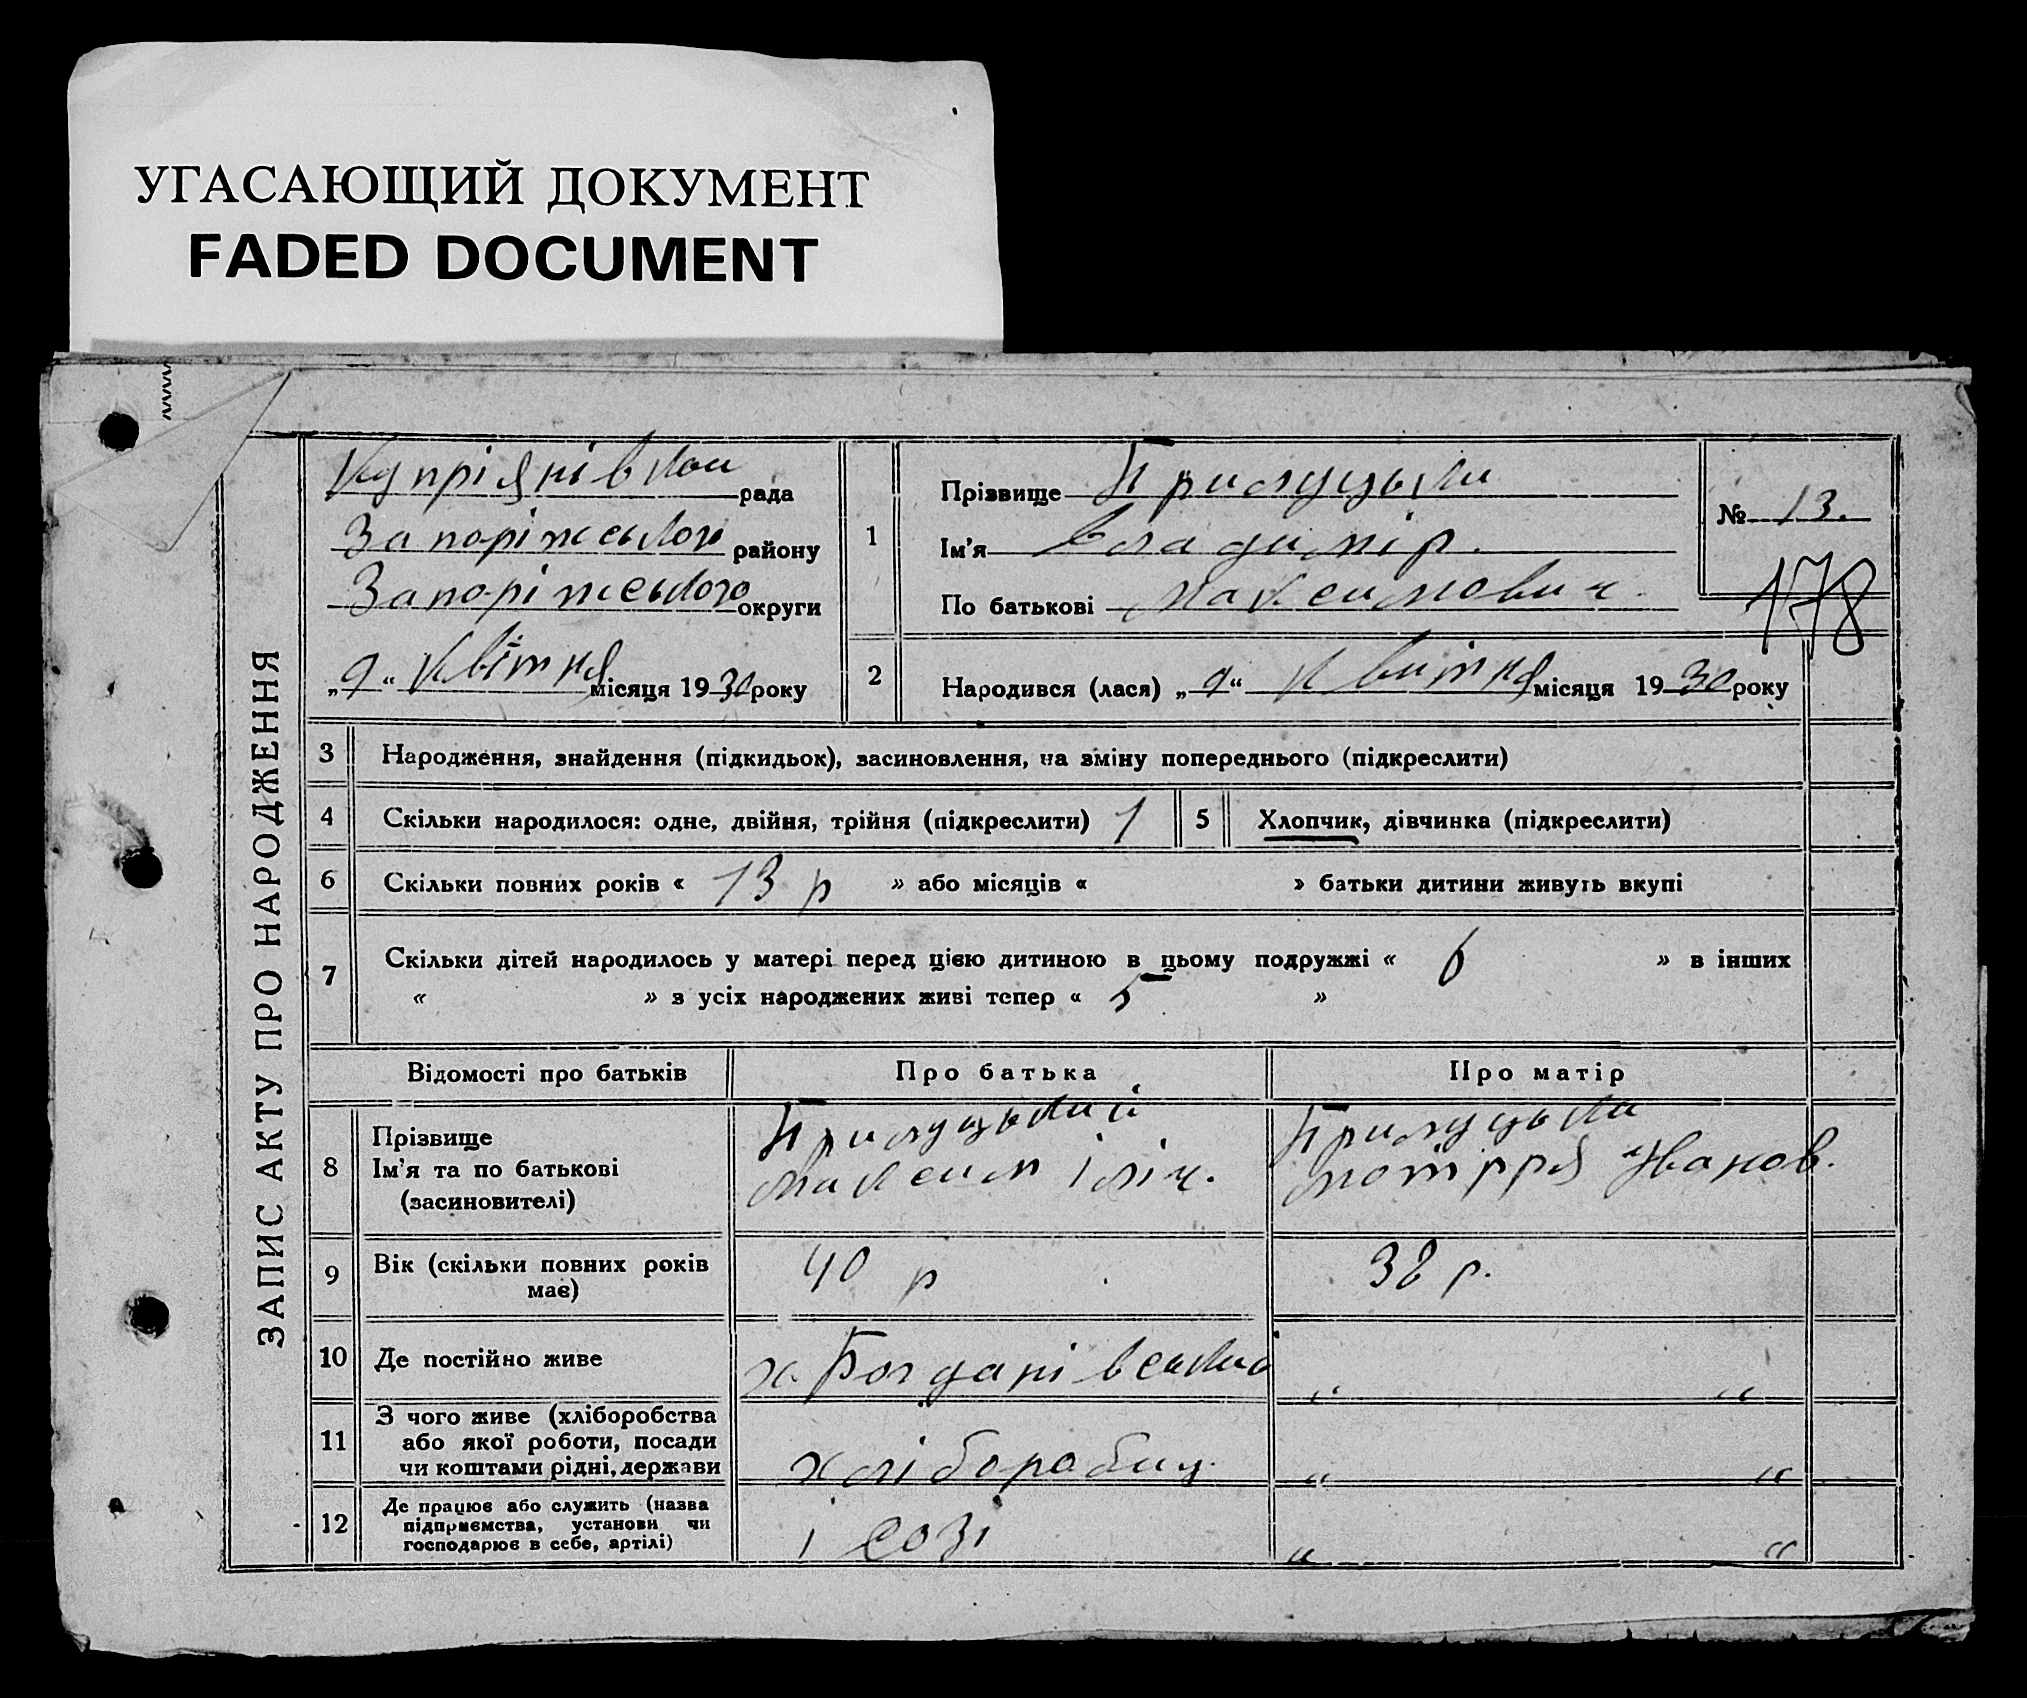 УГАСАЮЩИЙ ДОКУМЕНТ
FADED DOCUMENT
ЗАПИС АКТУ ПРО НАРОДЖЕННЯ
Купріянівської рада
Запоріжського району
Запоріжського округи
„9“ Квітня місяця 1930 року
1
Прізвище Прилуцьки
Ім’я Владимір.
По батькові Максимович.
№ 13.
178
2
Народився (лася) „9“ Квитня місяця 1930 року
3 Народження, знайдення (підкидьок), засиновлення, на зміну попереднього (підкреслити)
4 Скільки народилося: одне, двійня, трійня (підкреслити) 1
5 Хлопчик, дівчинка (підкреслити)
6 Скільки повних років « 13 р » або місяців « » батьки дитини живуть вкупі
7 Скільки дітей народилось у матері перед цією дитиною в цьому подружжі « 6 » в інших
« » з усіх народжених живі тепер « 5 »
Відомості про батьків Про батька Про матір
8
Прізвище
Ім’я та по батькові
(засиновителі)
Прилуцький
Максим Іліч.
Прилуцьки
Мотрря Иванов.
9 Вік (скільки повних років
має)
40 р
38 р.
10 Де постійно живе х Богданівський “ “
11
З чого живе (хліборобства
або якої роботи, посади
чи коштами рідні, держави
хліборобиц. “ “
12
Де працює або служить (назва
підприємства, установи чи
господарює в себе, артілі)
і созі “ “